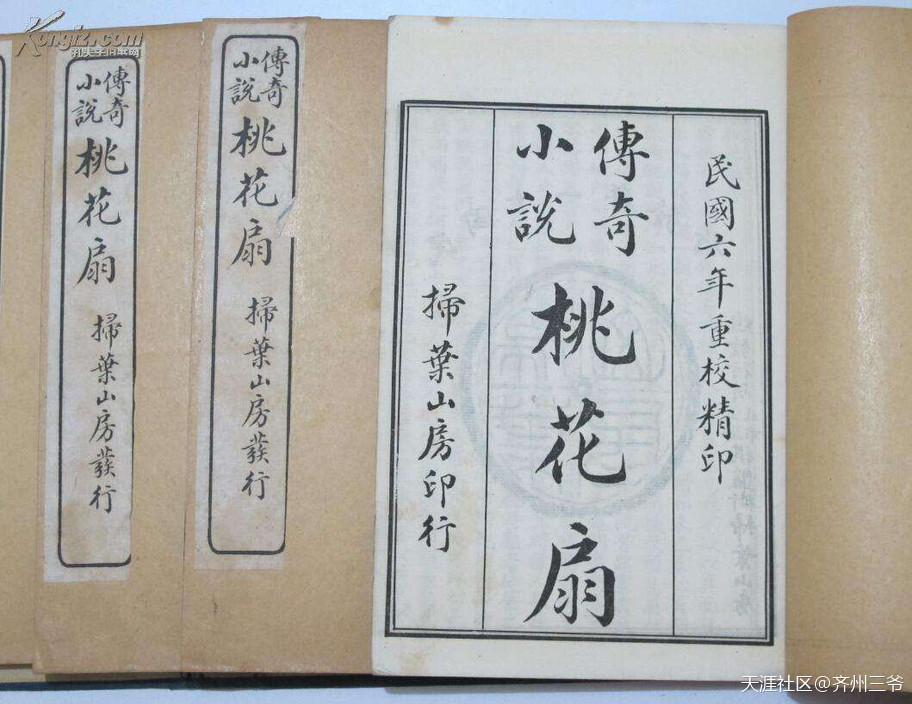 民國六年重校精印
傳奇
小說
桃花扇
掃葉山房印行
傳奇
小說
桃花扇
掃葉山房發行
傳奇
小說
桃花扇
掃葉山房發行
Kongfz.com
孔夫子旧书网
天涯社区@齐州三爷